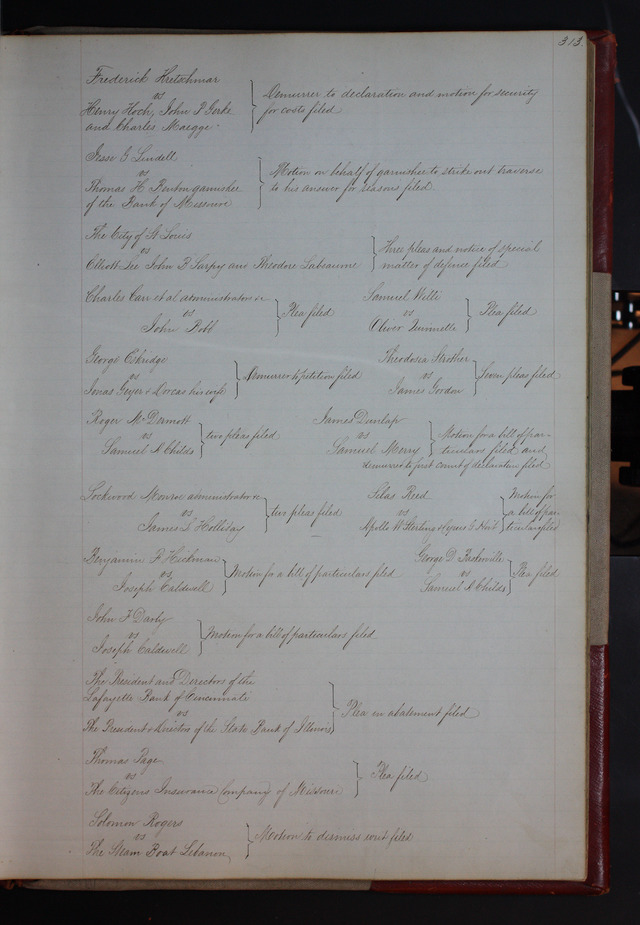 313.
Frederick Kretschmar
vs
Henry Hoch, John P Gerke
and Charles Maegge.
Demurrer to declaration and motion for security
for costs filed
Jesse G Lindell
vs
Thomas H Benton garnishee
of the Bank of Missouri
Motion on behalf of garnishee to strike out traverse
to his answer for reasons filed.
The City of St. Louis
vs
Elliott Lee John B Sarpy and Theodore Labeaume
Three pleas and notice of special
matter of defence filed
Charles Carr et al administrators &c
vs
John Robb
Plea filed
Samuel Willi
vs
Oliver
Plea filed
George Eskridge
vs
Jonas Geyer & Dorcas his wife
Demurrer to petition filed
Theodosia Strother
vs
James Gordon
Seven pleas filed
Roger McDermott
vs
Samuel N Childs
two pleas filed
James Dunlap
vs
Samuel Merry
Motion for a bill of par-
ticulars filed and
demurrer to first count of declaration filed
Lockwood Monroe administrator &c
vs
James S Holliday
two pleas filed
Silas Reed
vs
Apollo W Sterling & Cyrus G
Motion for
a bill of par
ticulars filed
Benjamin F Hickman
vs
Joseph Caldwell
Motion for a bill of particulars filed
George D Baskerville
vs
Samuel N Childs
Plea filed
John F Darby
vs
Joseph Caldwell
Motion for a bill of particulars filed
The President and Directors of the
Lafayette Bank of Cincinnati
vs
The President & Directors of the State Bank of Illinois
Plea in abatement filed
Thomas Page
vs
The Citizens Insurance Company of Missouri
Plea filed
Solomon Rogers
vs
The Steam Boat Lebanon
Motion to dismiss suit filed